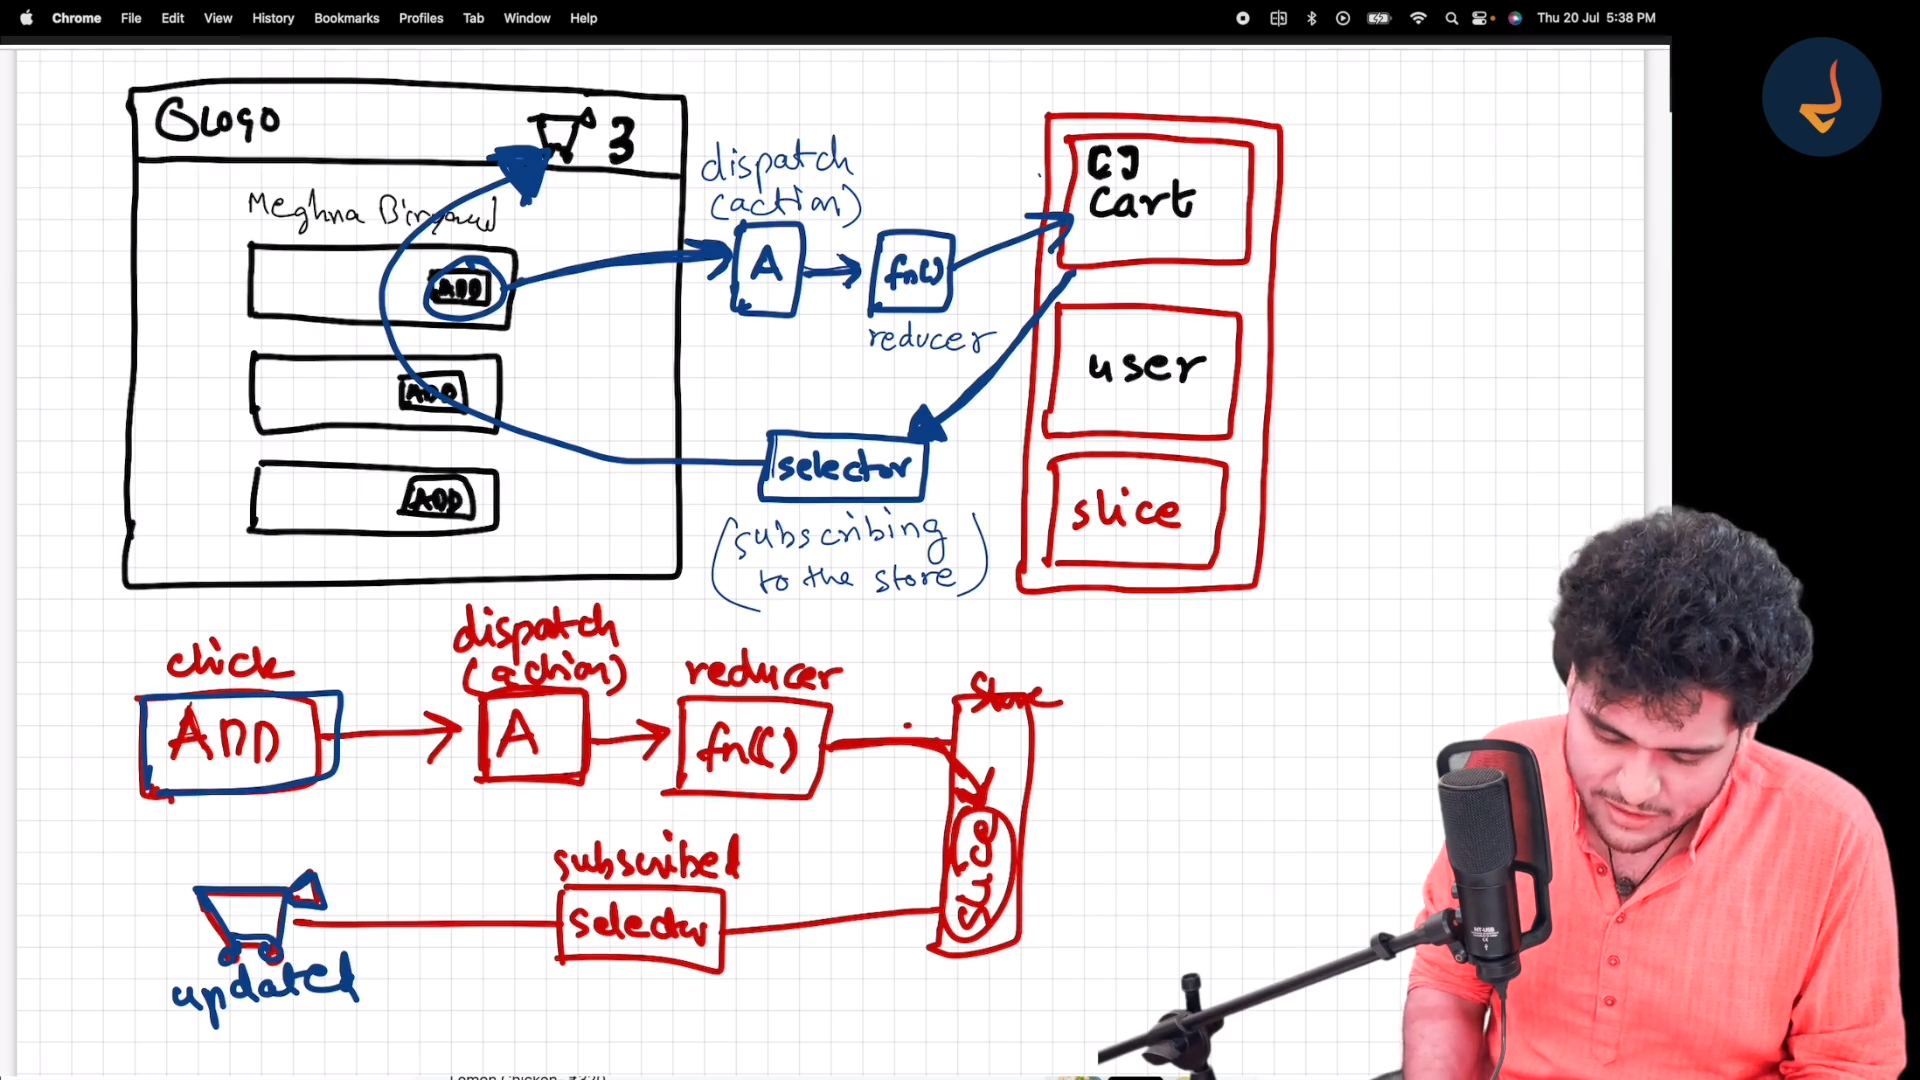 Chrome File Edit View History Bookmarks Profiles Tab Window Help
Thu 20 Jul 5:38 PM
LOGO
3
Meghna Biryani
ADD
ADD
ADD
dispatch
(action)
A
fn()
reducer
selector
(subscribing
to the store)
[]
Cart
user
slice
click
ADD
dispatch
(action)
A
reducer
fn()
Store
slice
subscribed
selector
updated